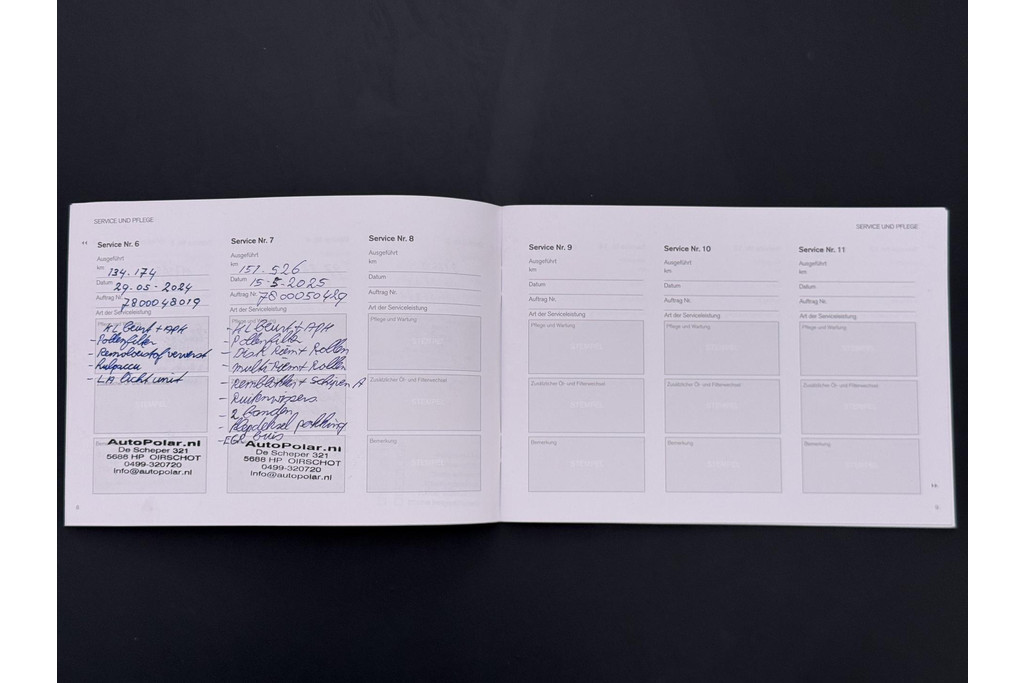 SERVICE UND PFLEGE
Service Nr. 6
Ausgeführt
km 134.174
Datum 29-05-2024
Auftrag Nr. 7800048019
Art der Serviceleistung
Pflege und Wartung
KL Beurt + APK
- Pollenfilter
- Remvloeistof ververst
- Ruitwissers
- LA licht unit
AutoPolar.nl
De Scheper 321
5688 HP OIRSCHOT
0499-320720
info@autopolar.nl
6
Service Nr. 7
Ausgeführt
km 151.526
Datum 15-5-2025
Auftrag Nr. 7800050429
Art der Serviceleistung
Pflege und Wartung
- KL Beurt + APK
- Pollenfilter
- Riem + Rollen
- Multi Riem + Rollen
- Remblokken + Schijven A
- Ruitenwissers
- 2 Banden
- pakking
- EGR buis
AutoPolar.nl
De Scheper 321
5688 HP OIRSCHOT
0499-320720
info@autopolar.nl
Service Nr. 8
Ausgeführt
km
Datum
Auftrag Nr.
Art der Serviceleistung
Pflege und Wartung
Zusätzlicher Öl- und Filterwechsel
Bemerkung
SERVICE UND PFLEGE
Service Nr. 9
Ausgeführt
km
Datum
Auftrag Nr.
Art der Serviceleistung
Pflege und Wartung
Zusätzlicher Öl- und Filterwechsel
Bemerkung
Service Nr. 10
Ausgeführt
km
Datum
Auftrag Nr.
Art der Serviceleistung
Pflege und Wartung
Zusätzlicher Öl- und Filterwechsel
Bemerkung
Service Nr. 11
Ausgeführt
km
Datum
Auftrag Nr.
Art der Serviceleistung
Pflege und Wartung
Zusätzlicher Öl- und Filterwechsel
Bemerkung